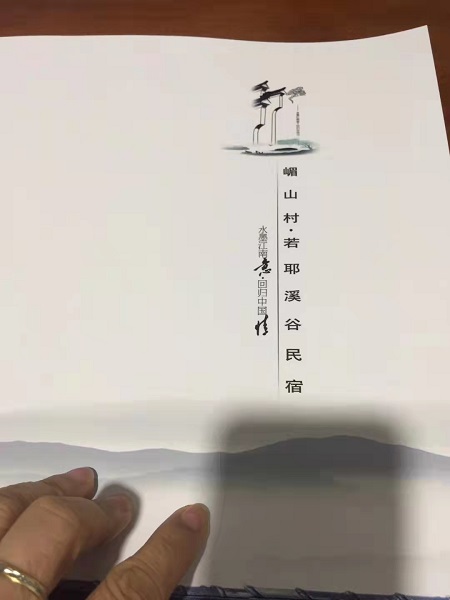 嵋山村·若耶溪谷民宿
水墨江南意·回归中国情